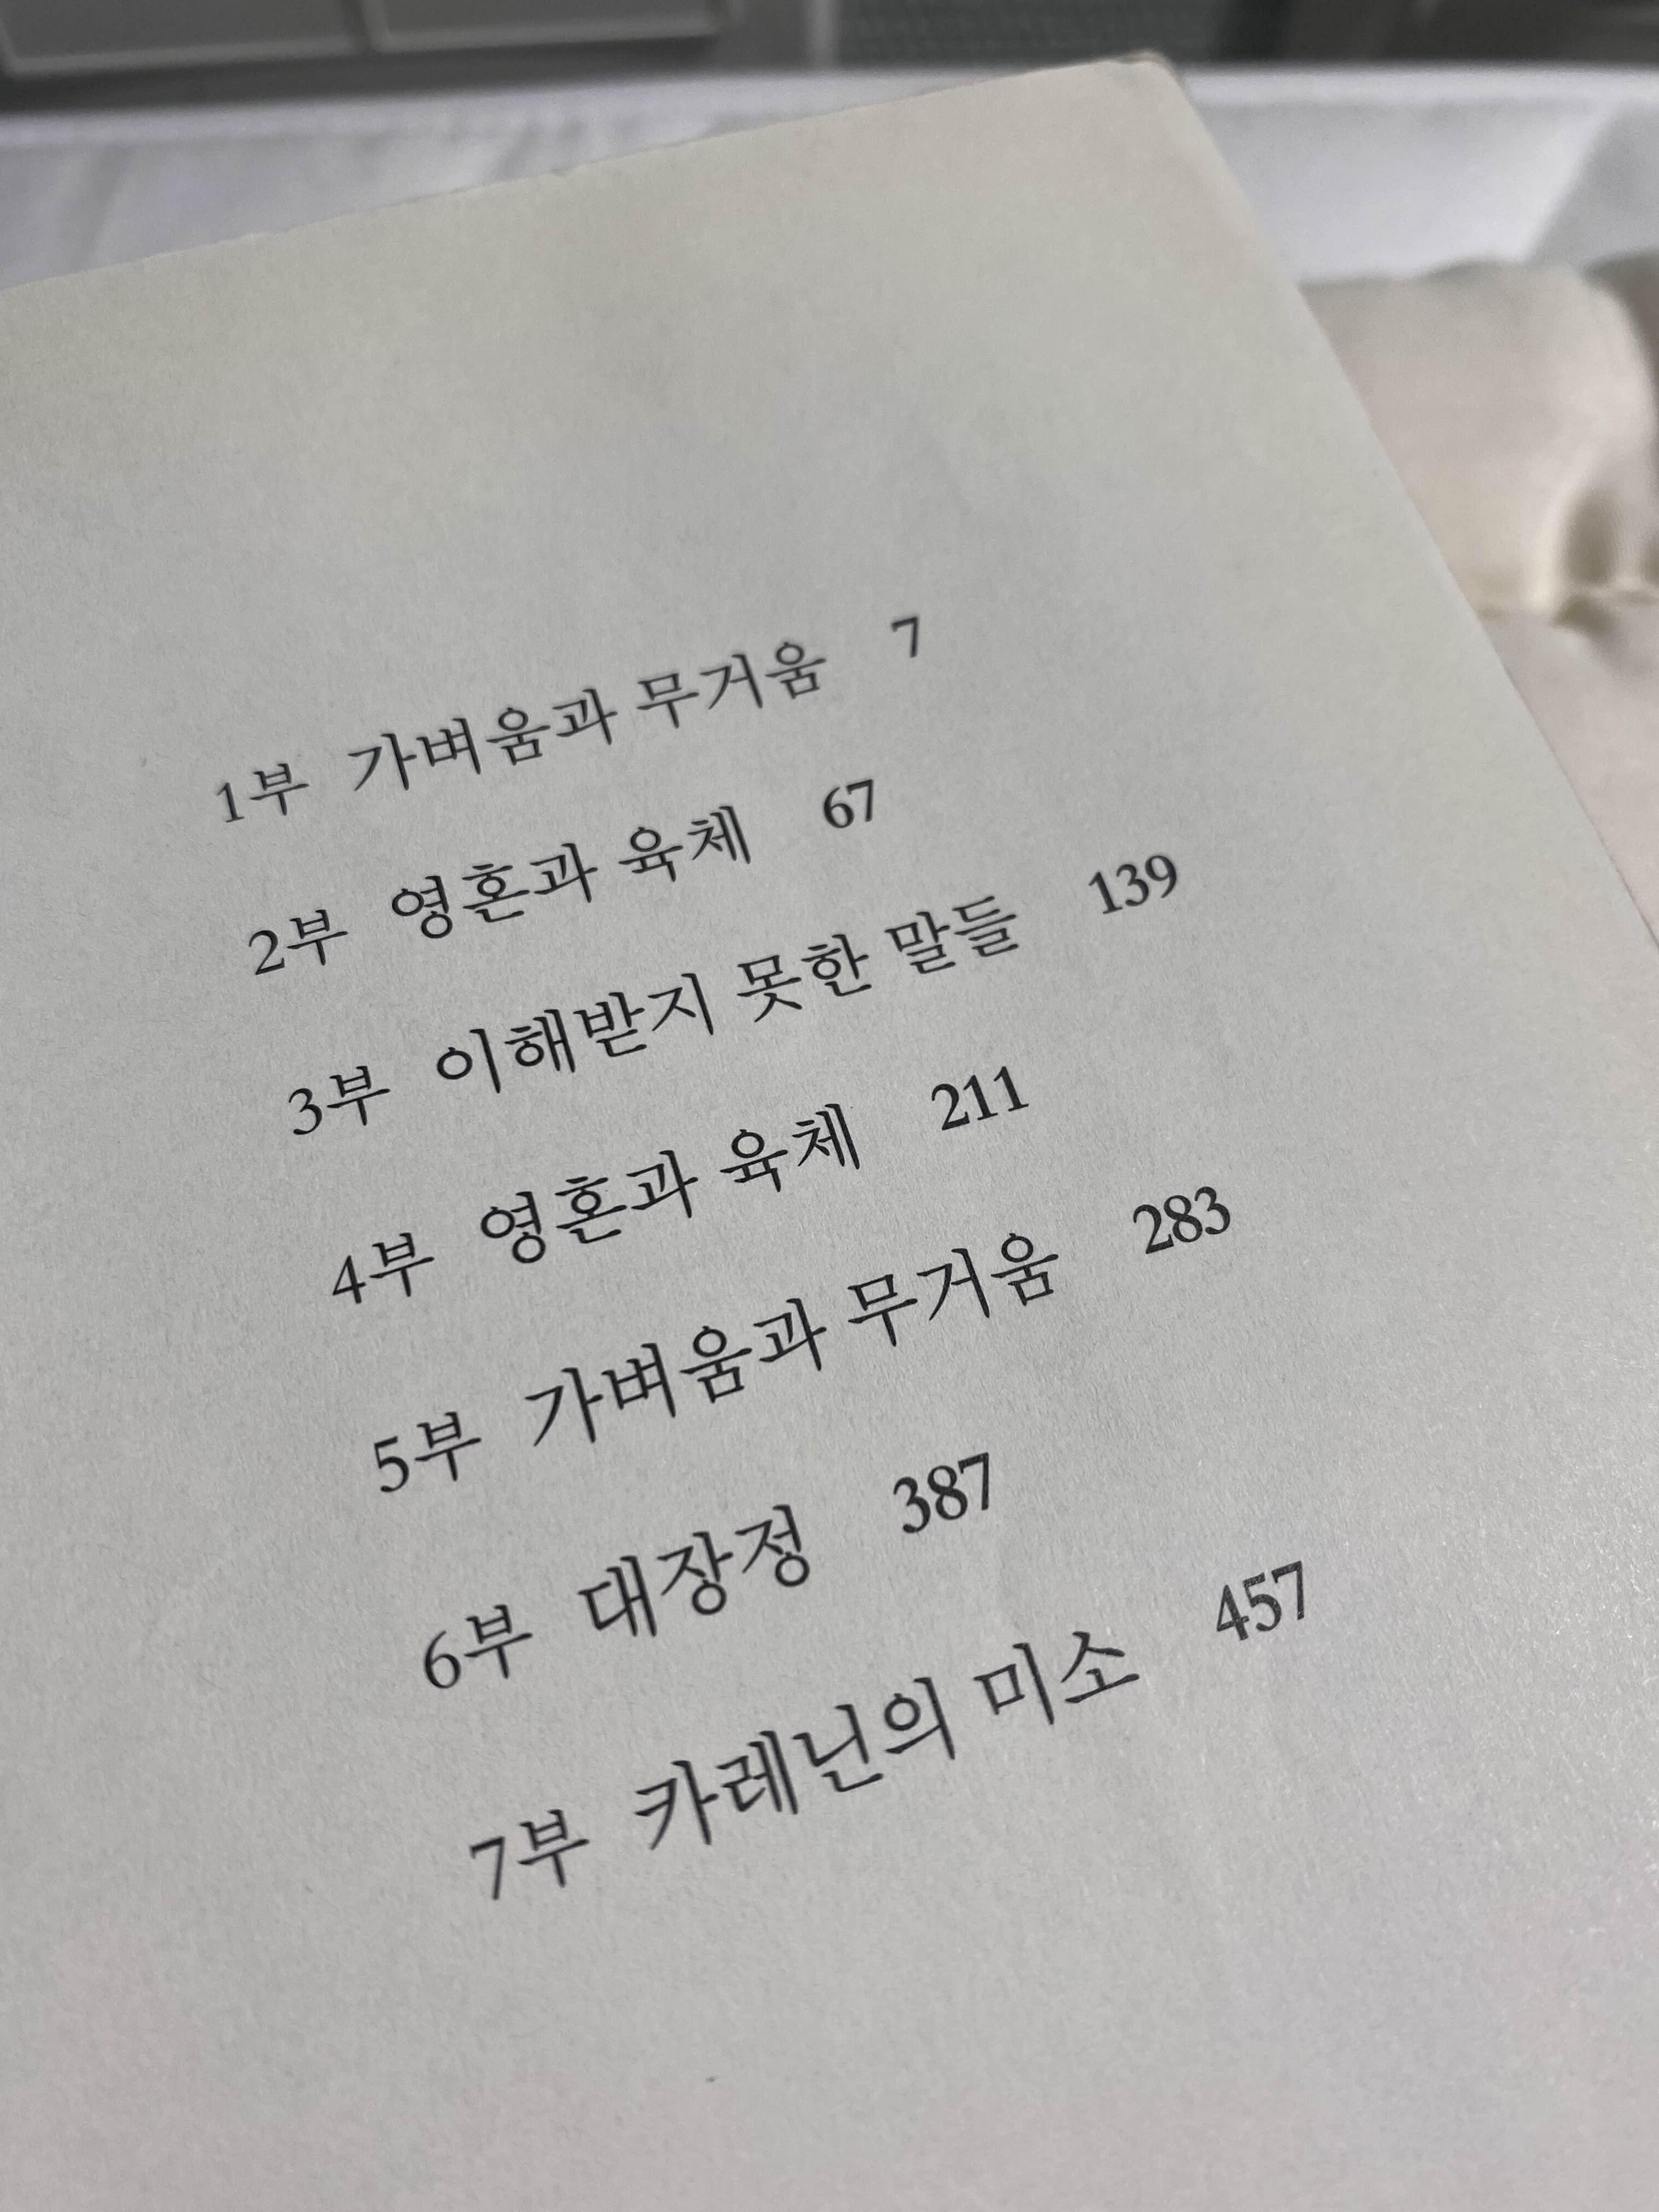 1부 가벼움과 무거움 7
2부 영혼과 육체 67
3부 이해받지 못한 말들 139
4부 영혼과 육체 211
5부 가벼움과 무거움 283
6부 대장정 387
7부 카레닌의 미소 457